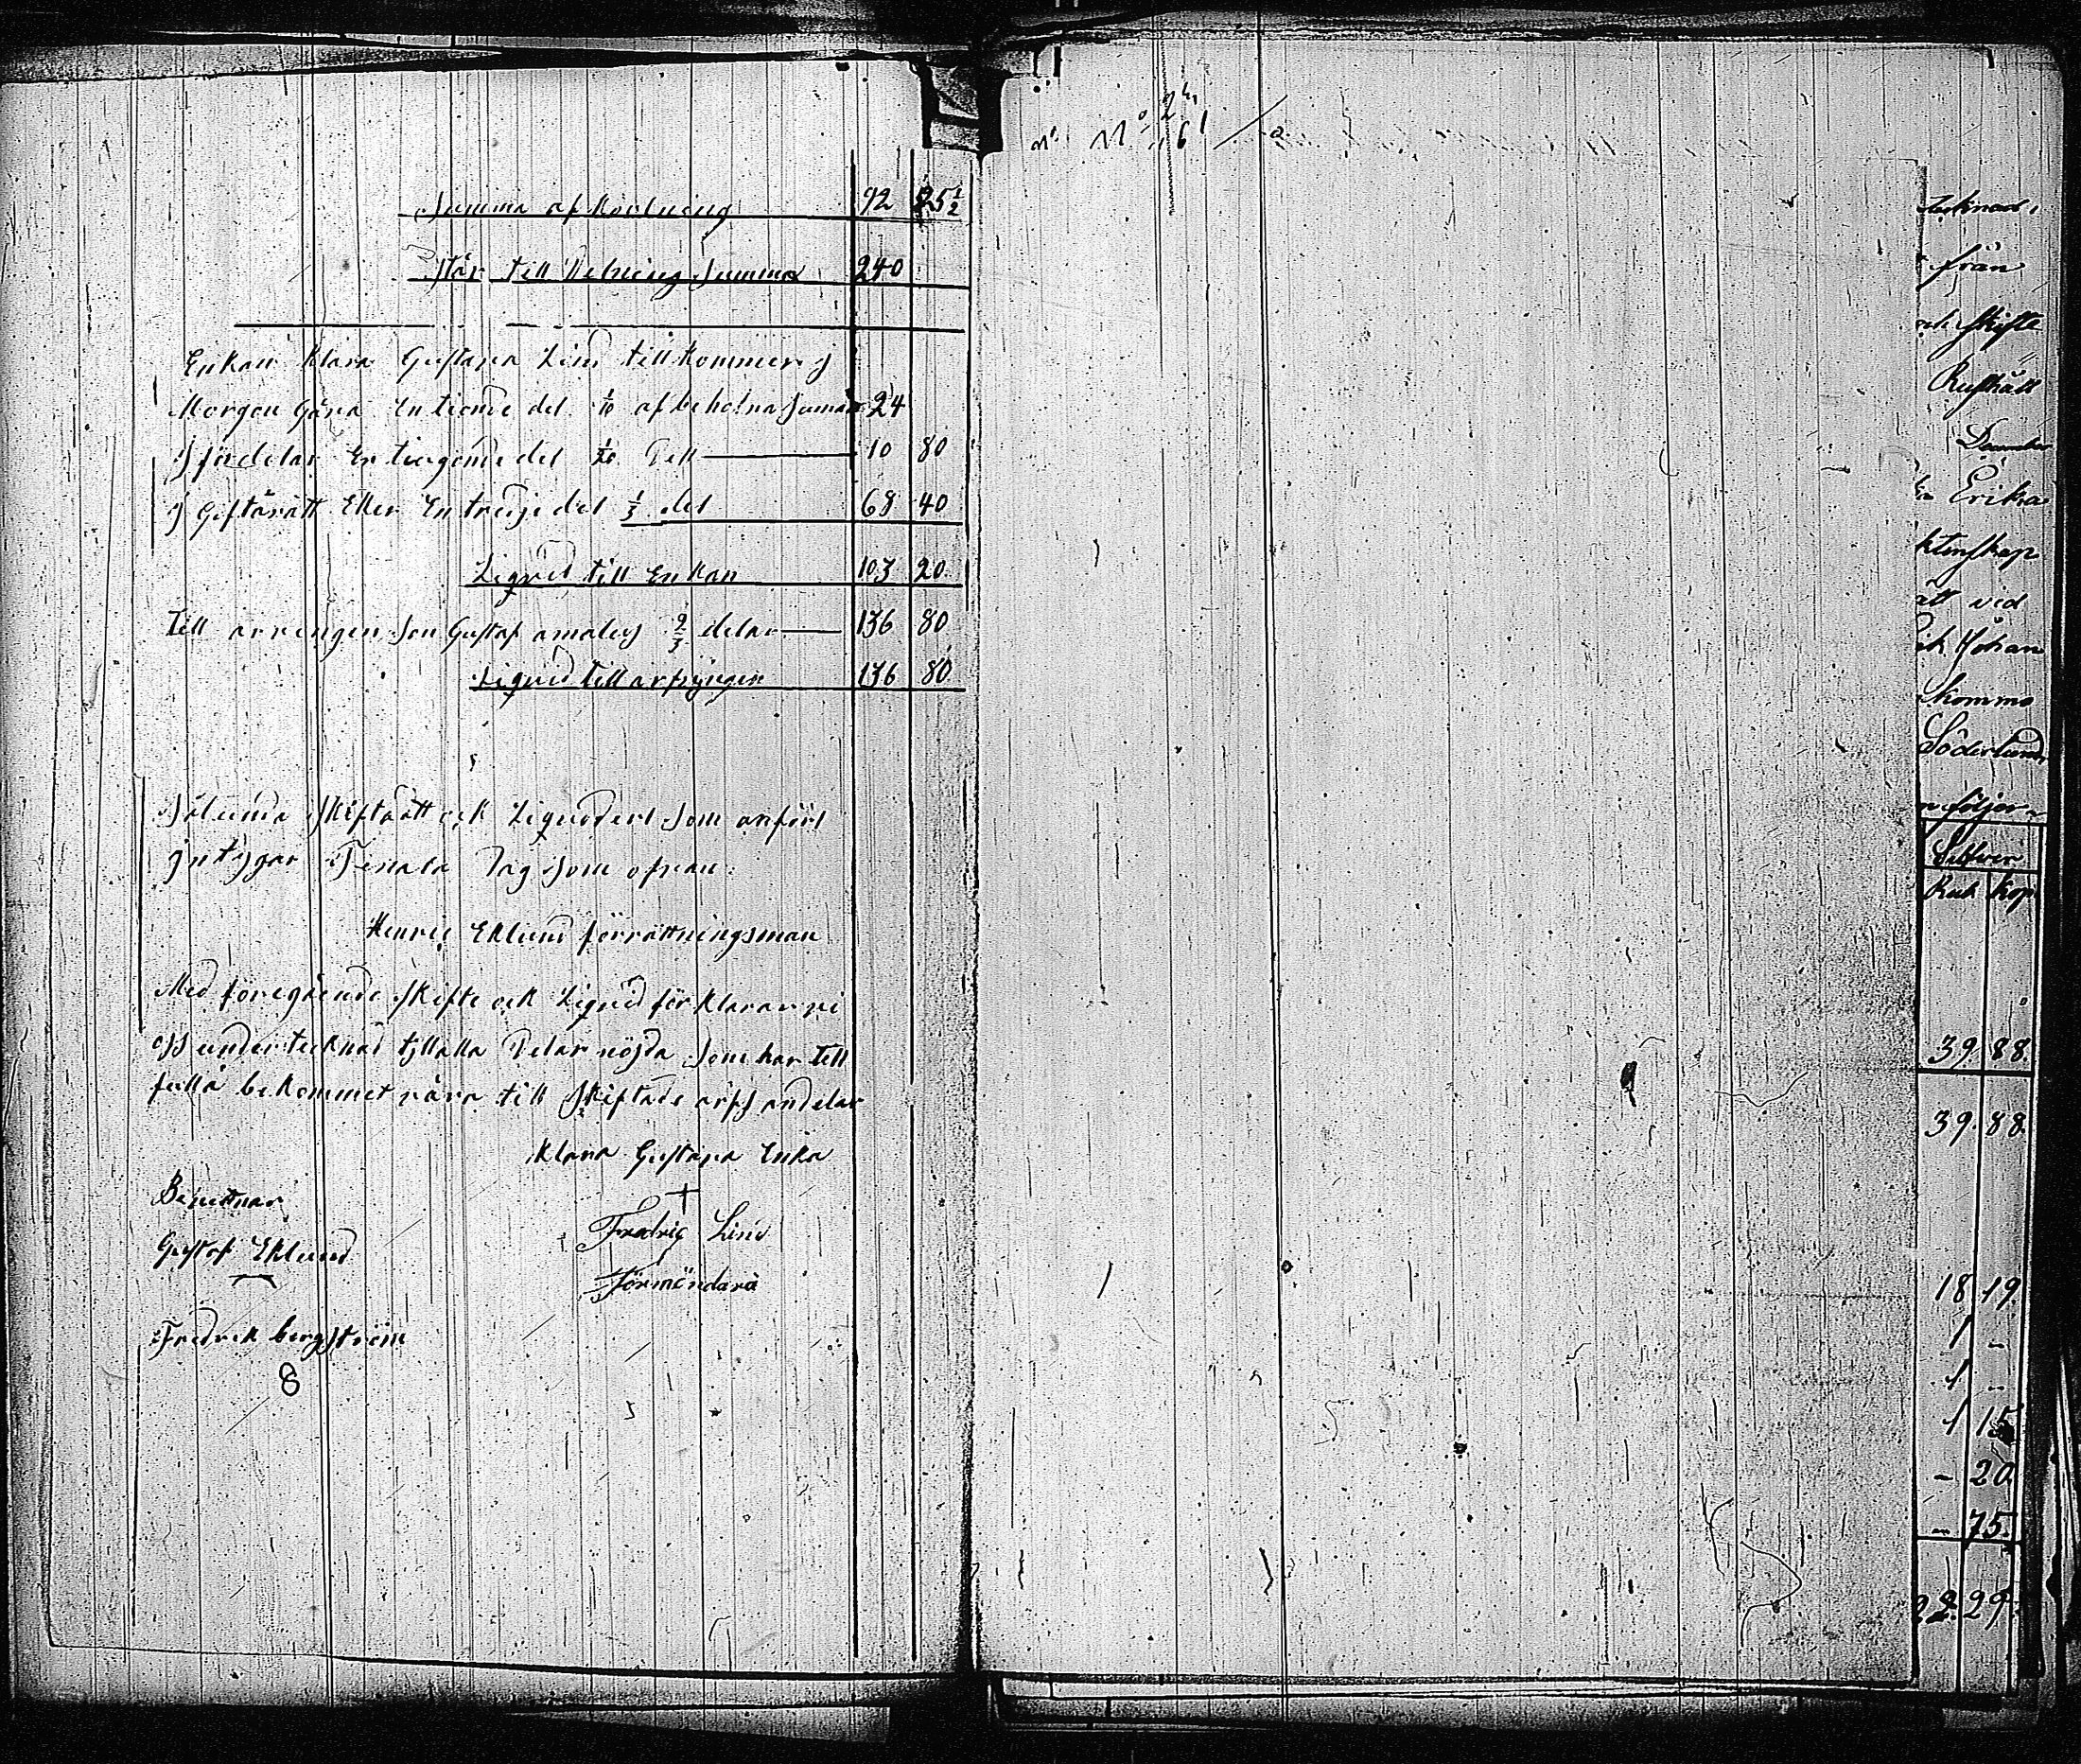 Summa afkortning 92 25½
Står till Delning Summa 240
Enkan Klara Gustava Lind tillkommer i
Morgon Gåva En tionde del 1/10 af beholna Suman 24
i fördelar En tiugonde del 1/20 Dell 10 80
i Giftäratt Eller En tredje del 1/3 del 68 40
Liqvid till Enkan 103 20
Till arvingen Son Gustaf 2/3 delar 136 80
Liqvid till arfvingen 136 80
Sålunda Skiftadtt och Liquidert som anfört
intygar Tenala Dag som ofvan.
Henric Eklund förrättningsman
Med föregående Skifte ock Liqvid förklarar vi
oss undertecknad Delar nöjda som har till
fullo bekommet våra till Skiftade arfs andelar
Klara Gustava Enka
+
Bevittnar
Fredric Lind
Gustaf Eklund
Förmöndare
Fredrik bergström
8
No
61
från
Skifte
Rusthåll
December
Erika
vid
Johan
Söderlund
följer
Silfver
Rub Kop
39. 88.
39. 88.
18 19.
1 -
1 -
1 15
- 20
- 75.
22. 29.